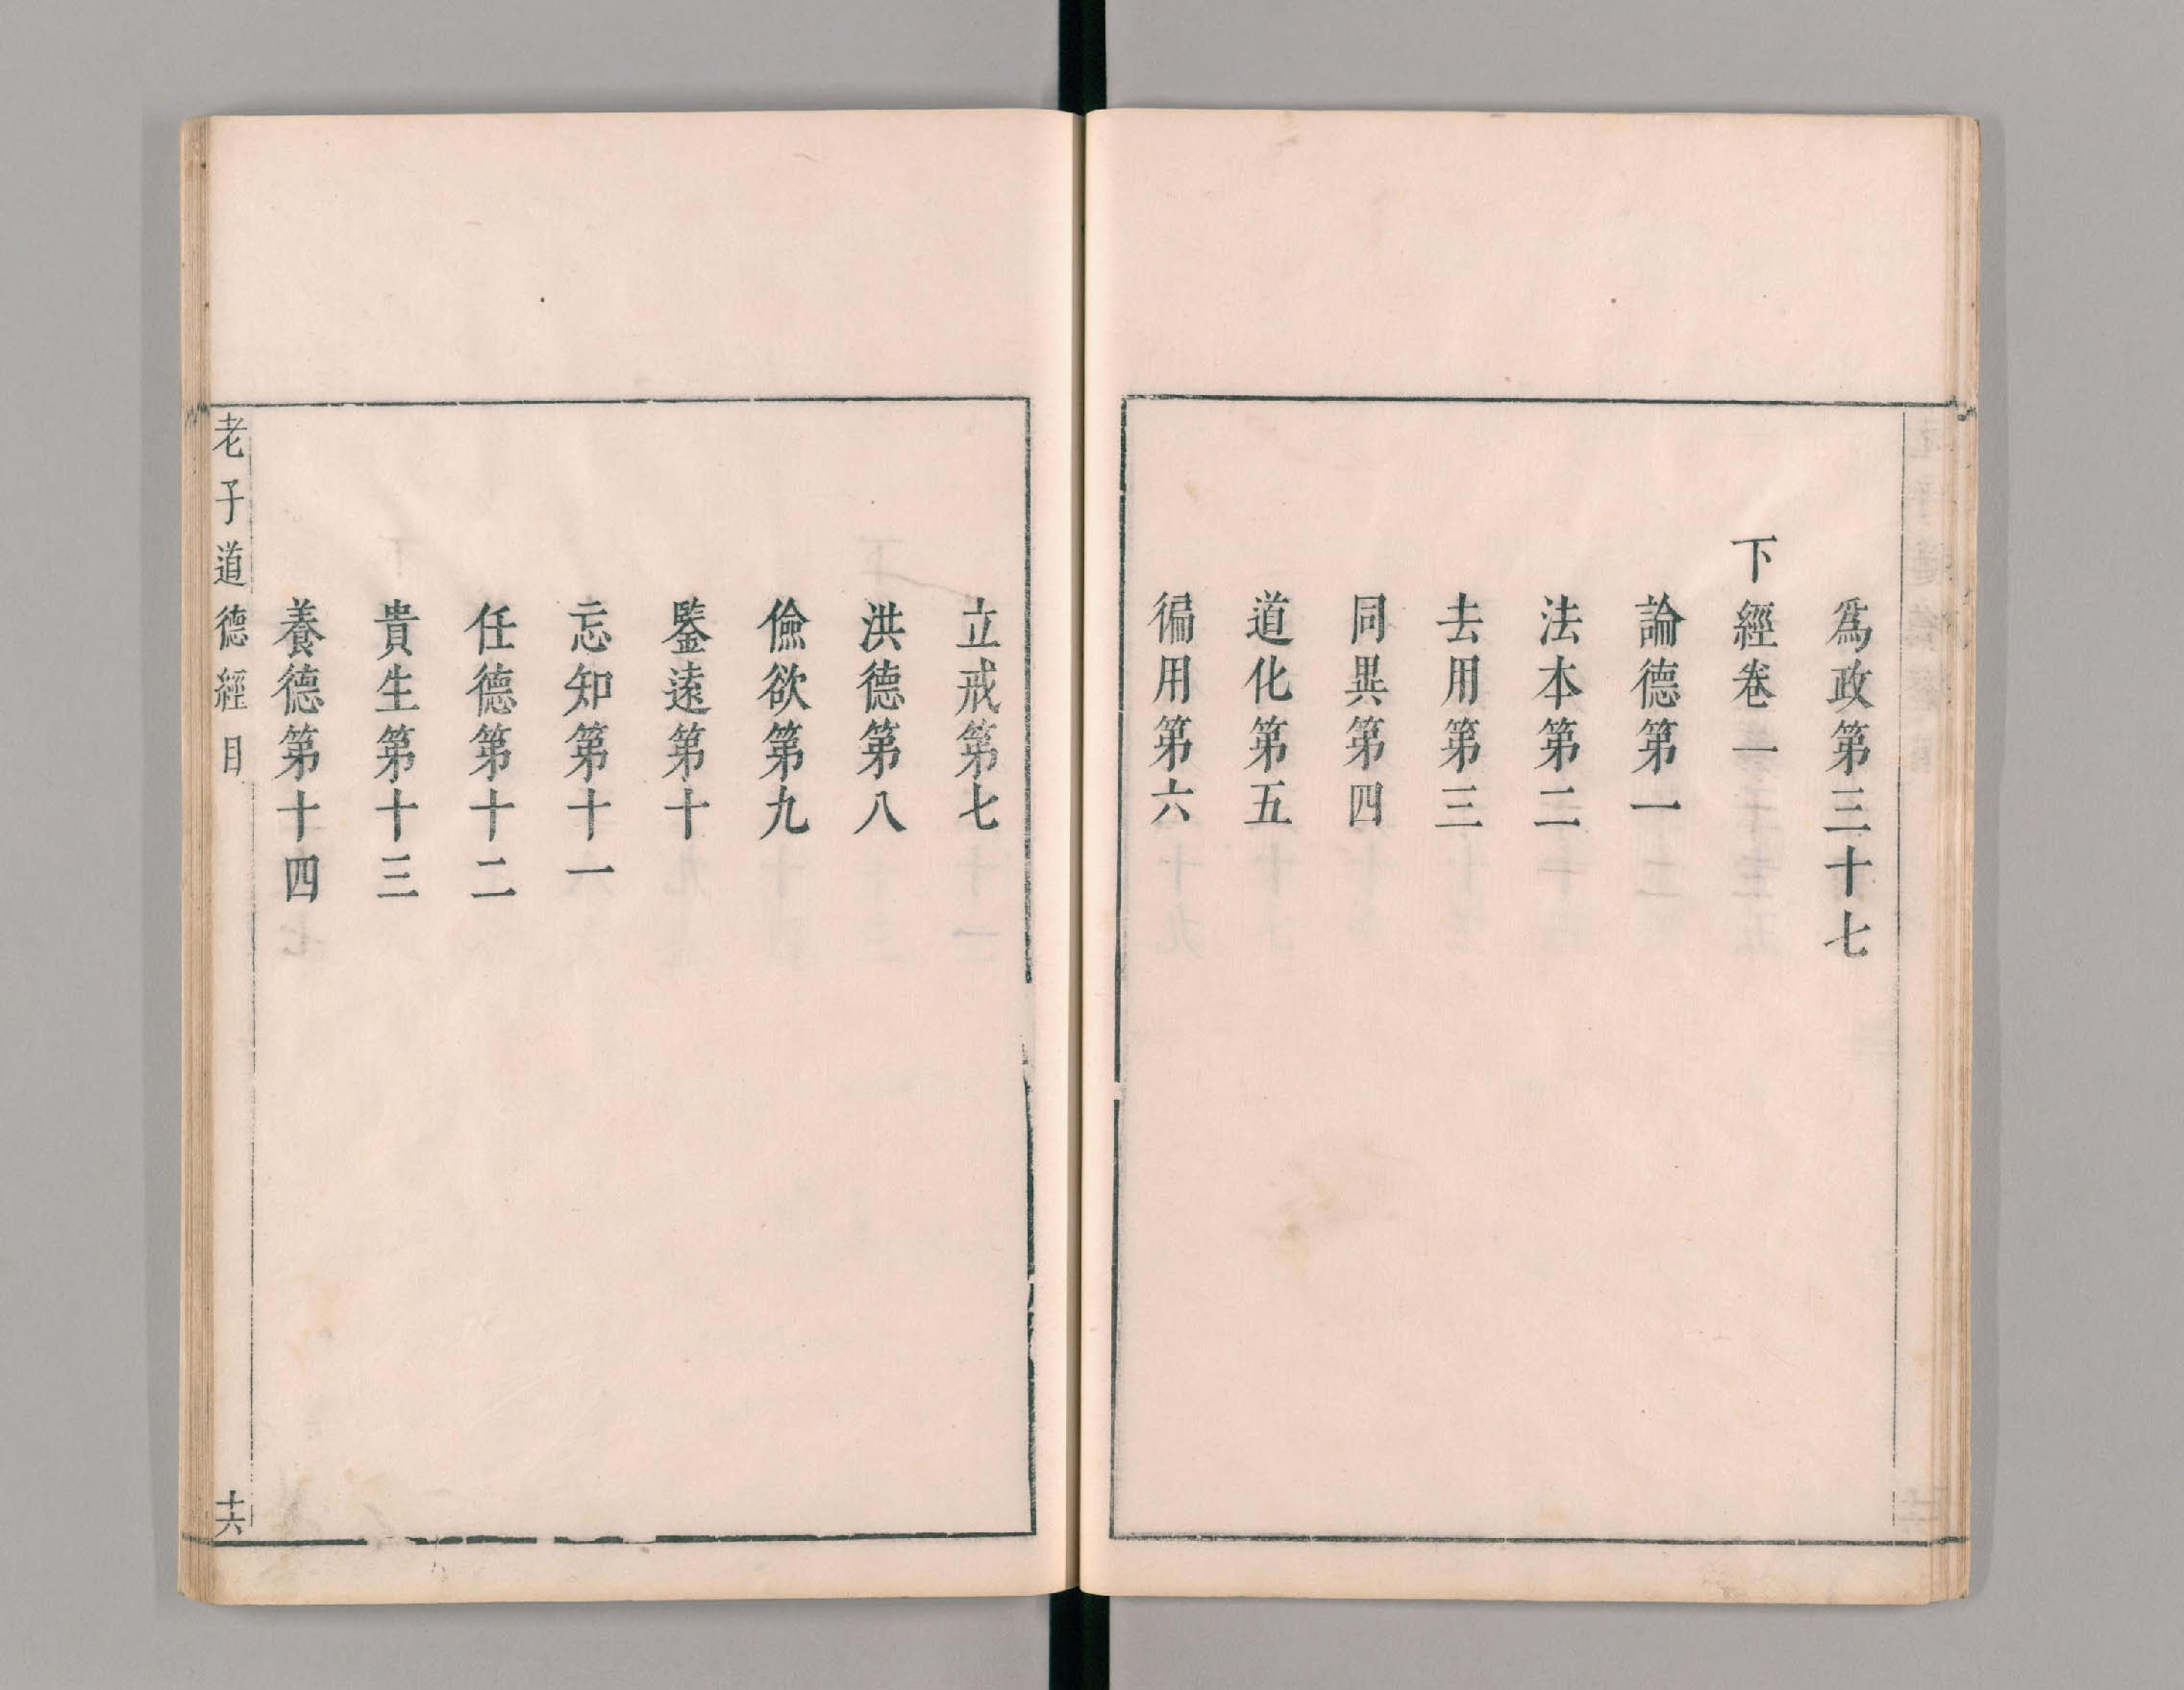 爲政第三十七
下經卷一
論德第一
法本第二
去用第三
同異第四
道化第五
徧用第六
立戒第七
洪德第八
儉欲第九
鑒遠第十
忘知第十一
任德第十二
貴生第十三
養德第十四
老子道德經目
十六